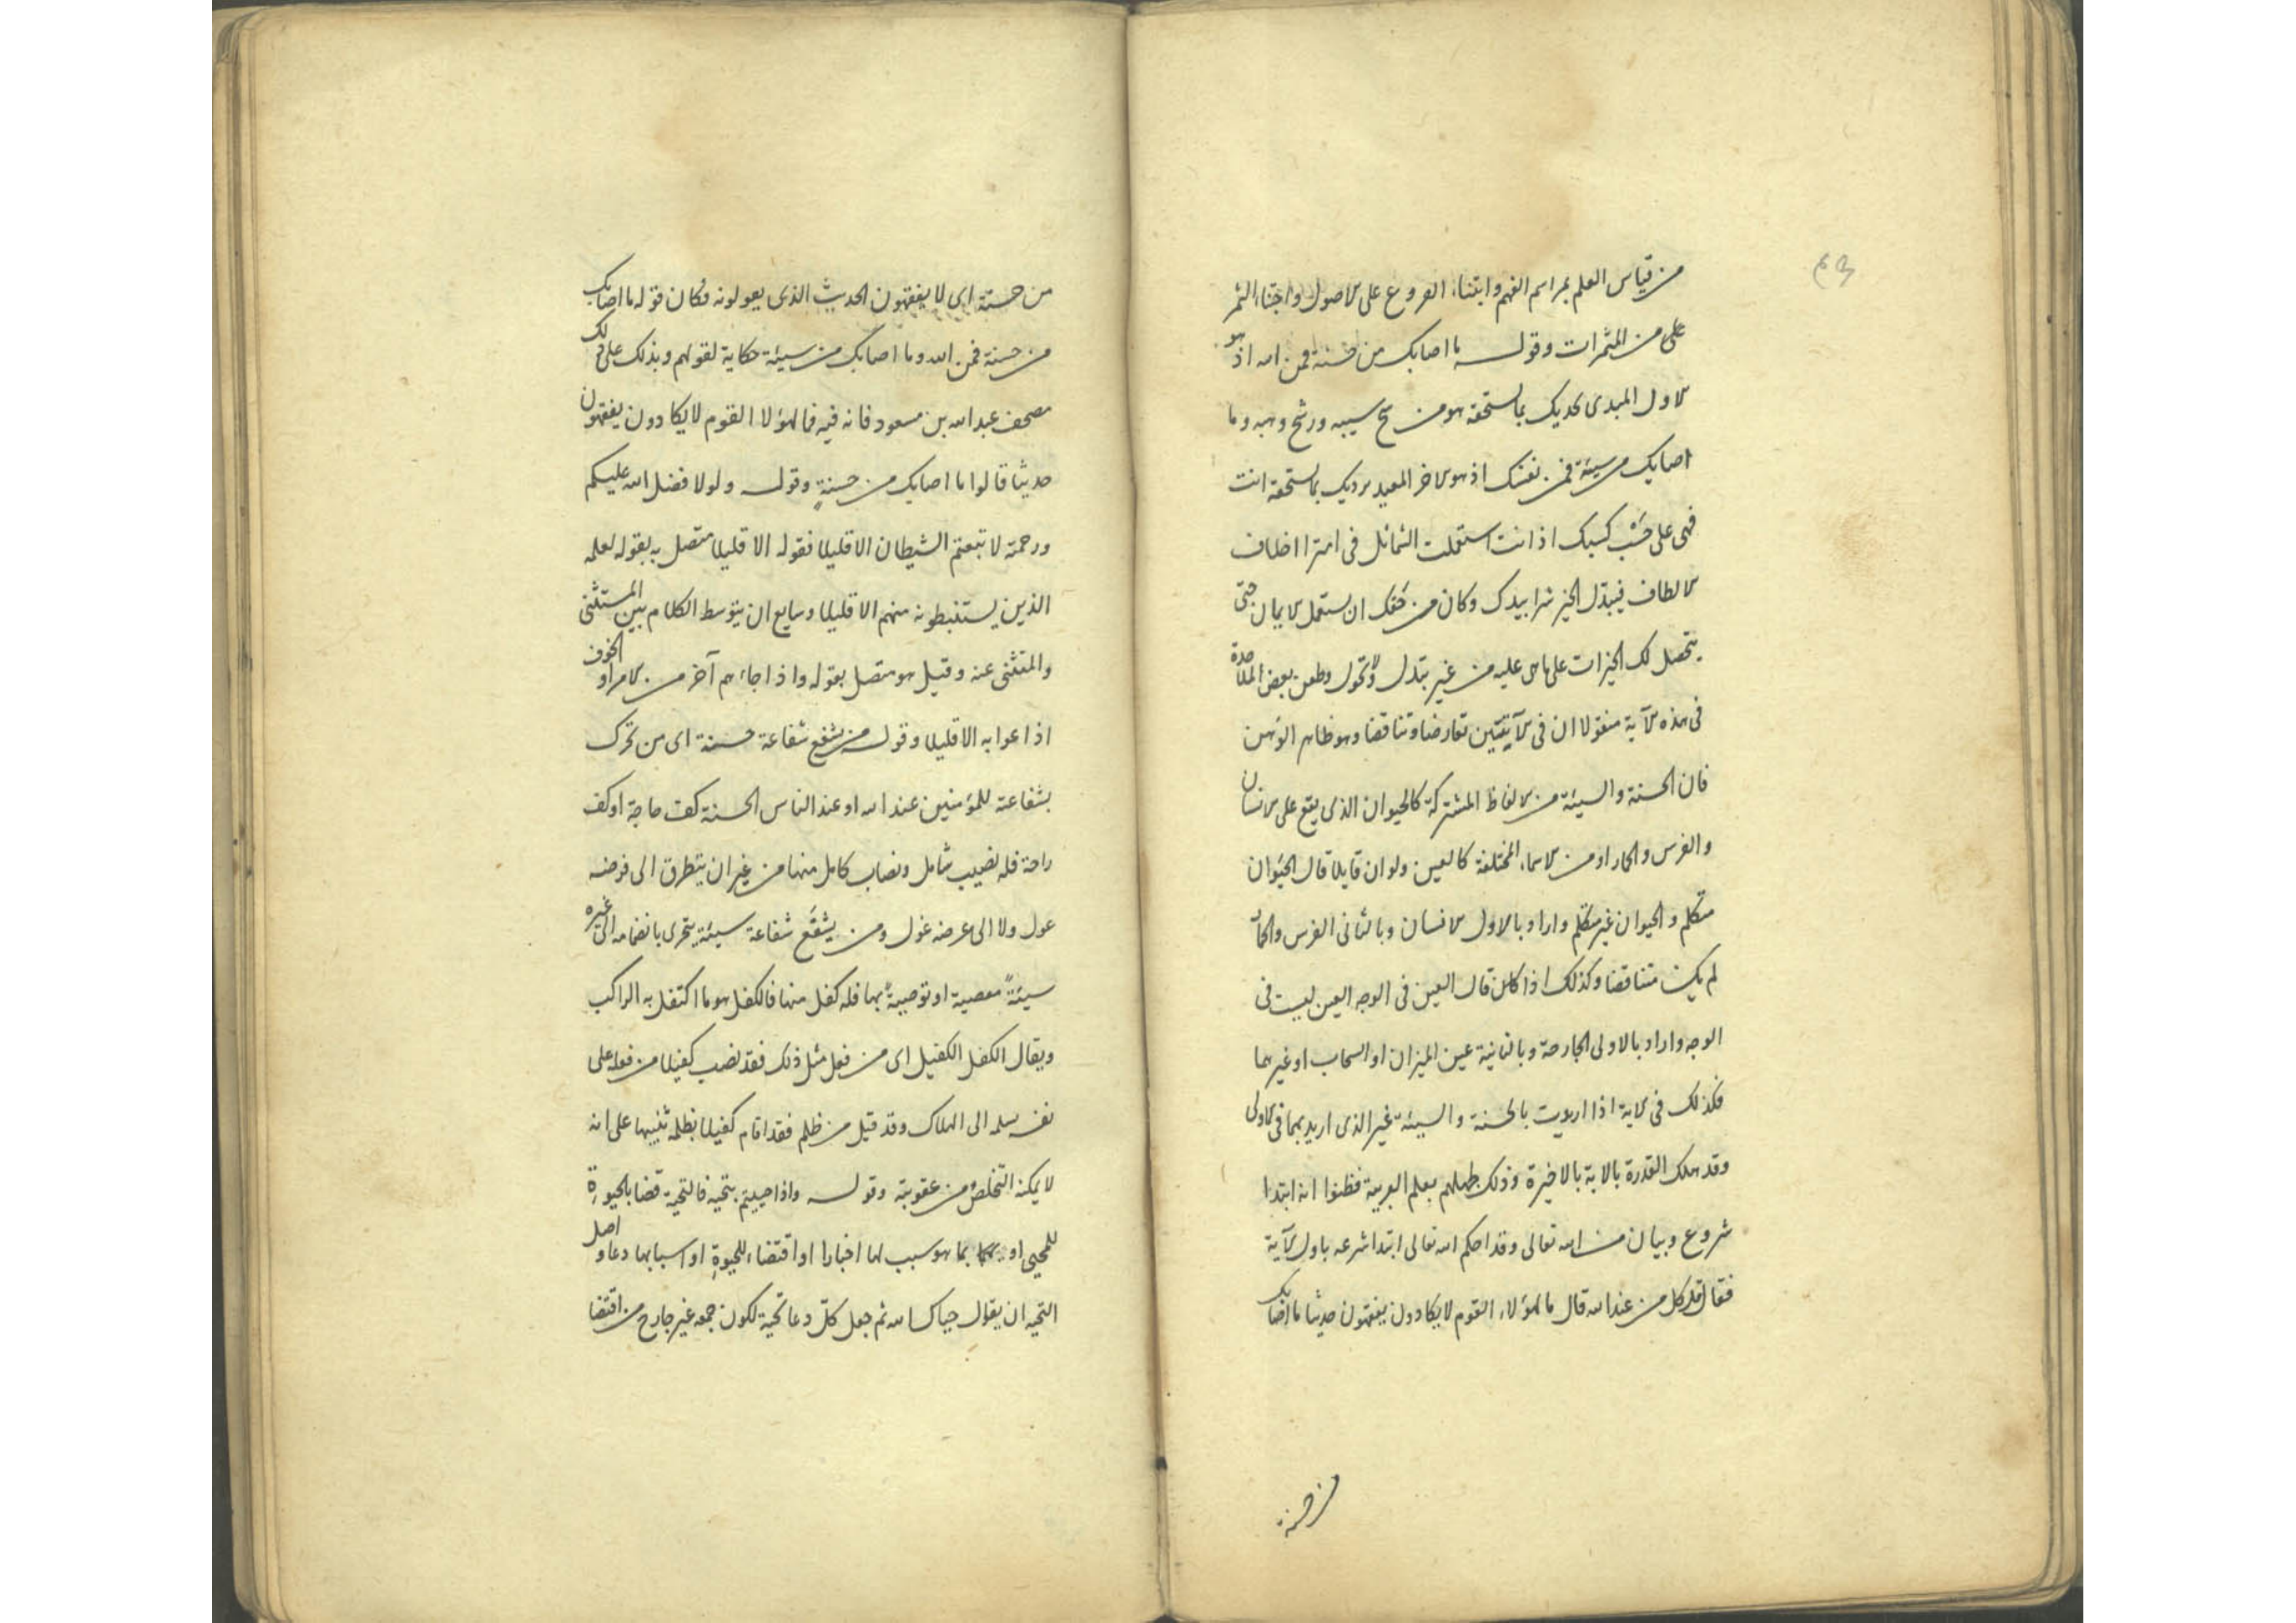 من قياس العلم بمراسم الفهم وابتناء الفروع على الاصول واجتناء الثمر
على من المثمرات وقوله ما اصابك من حسنة فمن الله اذ هو
الاول المبدى يحديك بما لستحقه هو من سح سيبه ورشح وهبه وما
اصابك من سيئة فمن نفسك اذ هو الاخر المعيد يرديك بما تستحقه انت
فهى على حسب كسبك اذ انت استعملت الشمائل فى امترا اخلاف
الالطاف فيبدل الخير شرا بيدك وكان من حقك ان تستعمل الايمان حتى
يتحصل لك الخيرات على ما هى عليه من غير تبدل ولا تحول وطعن بعض الملاحدة
فى هذه الآية منقولا ان فى الآيتين تعارضا وتناقضا وهو ظاهر الوهن
فان الحسنة والسيئة من الالفاظ المشتركة كالحيوان الذى يقع على الانسان
والفرس والحمار او من الاسماء المختلفة كالعين ولو ان قايلا قال الحيوان
متكلم والحيوان غير متكلم واراد بالاول الانسان وبالثانى الفرس والحمار
لم يكن متناقضا وكذلك اذا قال العين فى الوجه العين ليست فى
الوجه واراد بالاولى الجارحة وبالثانية عين الميزان او السحاب او غيرهما
فكذلك فى الاية اذا اريدت بالحسنة والسيئة غير الذى اريد بهما فى الاولى
وقد هلك القدرة بالاية بالاخيرة وذلك لجهلهم بعلم العربية فظنوا انه ابتدا
شروع وبيان من الله تعالى وقد احكم الله تعالى ابتدا شرعه باول الآية
فقال قل كل من عند الله قال مال هؤلاء القوم لا يكادون يفقهون حديثا ما اصابك
من حسنة
من حسنة اى لا يفقهون الحديث الذى يقولونه فكان قوله ما اصابك
من حسنة فمن الله وما اصابك من سيئة حكاية لقولهم وبذلك على ذلك
مصحف عبد الله بن مسعود فانه فيه فمال هؤلا القوم لا يكادون يفقهون
حديثا قالوا ما اصابك من حسنة وقوله ولولا فضل الله عليكم
ورحمته لا تبعتم الشيطان الا قليلا فقوله الا قليلا متصل به بقوله لعلمه
الذين يستنبطونه منهم الا قليلا وسايع ان يتوسط الكلام بين المستثنى
والمتثنى عنه وقيل هو متصل بقوله واذا جاءهم آخر من الامر او الخوف
اذاعوا به الا قليلا وقوله من يشفع شفاعة حسنة اى من تحرك
بشفاعة للمؤمنين عند الله او عند الناس الحسنة كفت حاجة او كف
راحة فله نصيب شامل ونصاب كامل منها من غير ان يتطرق الى فرضه
عول ولا الى عرضه غول ومن يشفع شفاعة سيئة يتحرى بانضمامه الى غيره
سيئة معصية او توصية بها فله كفل منها فالكفل هو ما اكتفل به الراكب
ويقال الكفل الكفيل اى من فعل مثل ذلك فقد نصب كفيلا من فعله على
نفسه يسلمه الى الهلاك وقد قيل من ظلم فقد اقام كفيلا بظلمه تنبيها على انه
لا يمكنه التخلص من عقوبته وقوله واذا حييتم بتحية فالتحية قضا بالحيوة
للمحيى او بما هو سبب لها اخبارا او اقتضاء للحيوة او اسبابها دعا واصل
التحية ان يقول حياك الله ثم جعل كل دعا تحية لكون جمعه غير خارج من اقتضا